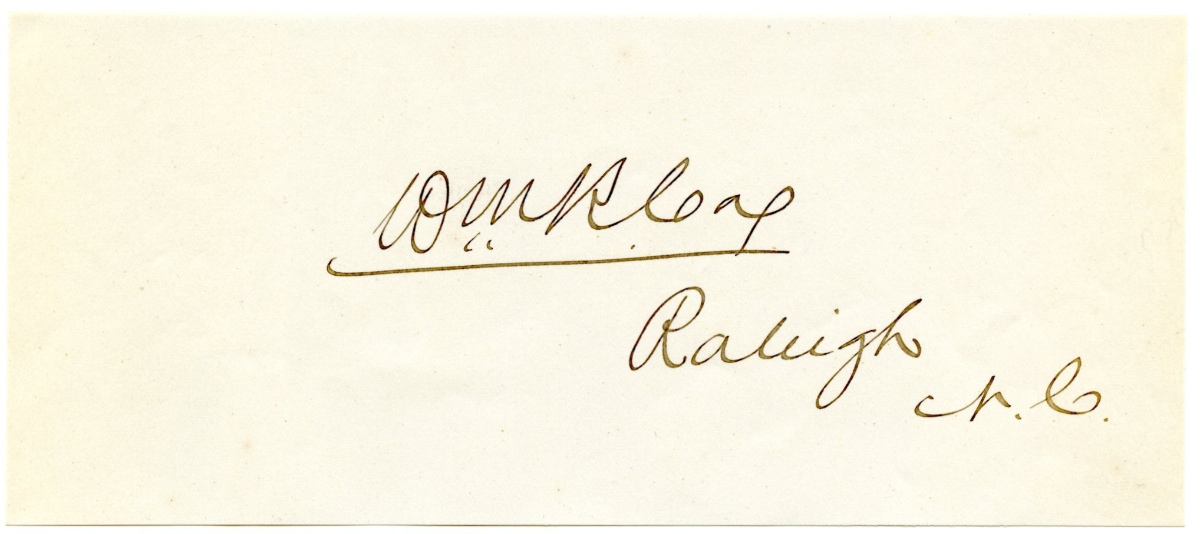 Wm R. Cox
Raleigh
N. C.